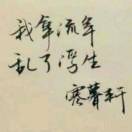 我拿流年
乱了浮生
寒聲軒